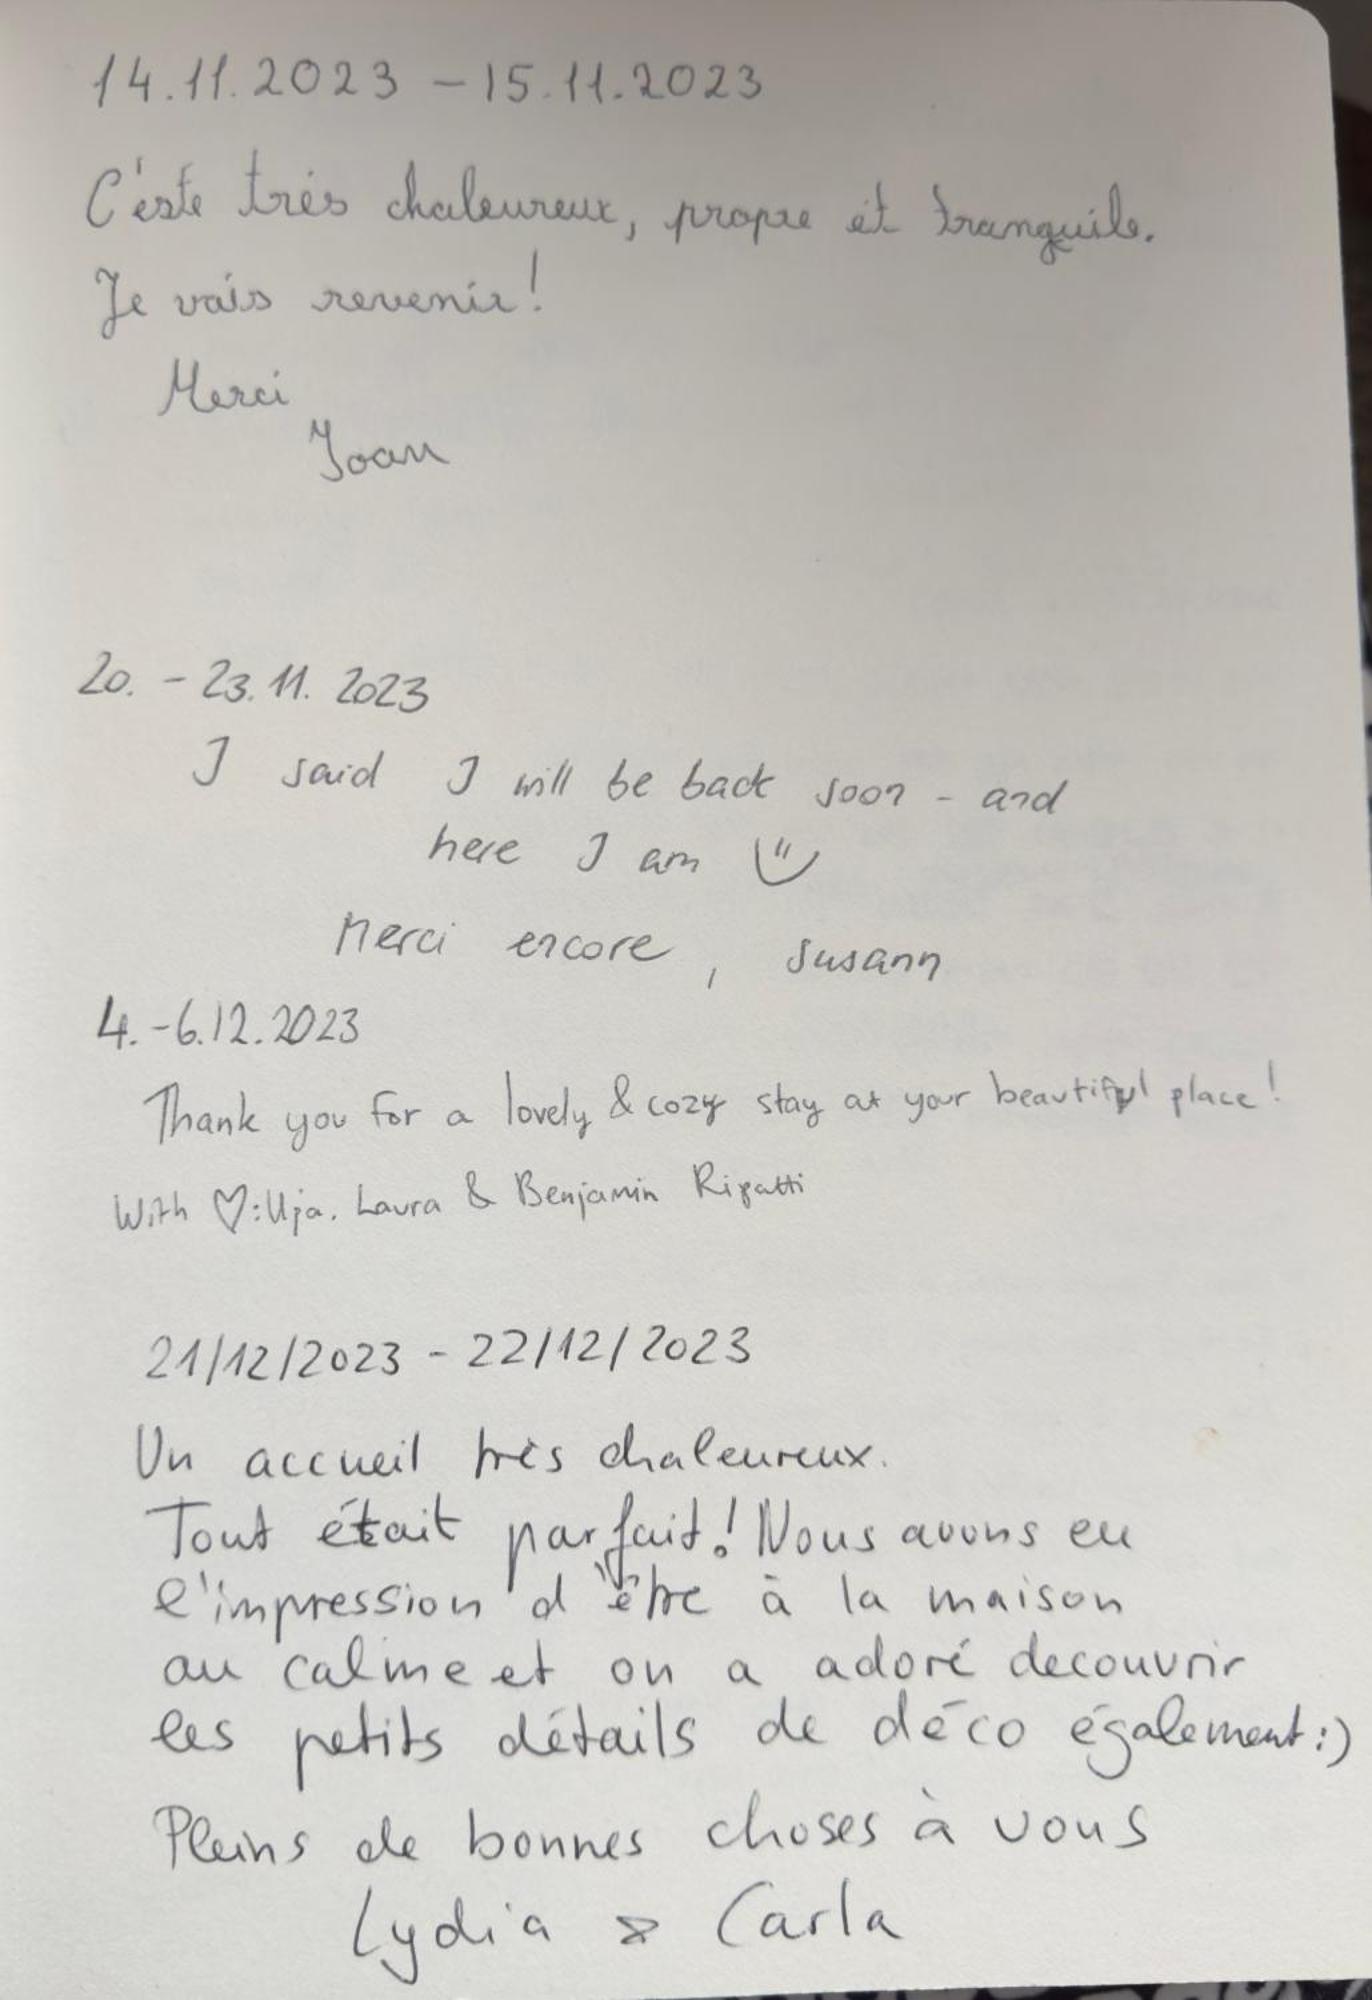 14.11.2023 - 15.11.2023
C'éste trés chaleureux, propre et tranquile.
Je vais revenir!
Merci
Joan
20. - 23.11. 2023
I said I will be back soon - and
here I am
Merci encore, Susann
4. - 6.12.2023
Thank you for a lovely & cozy stay at your beautiful place!
With ♡: Laura & Benjamin
21/12/2023 - 22/12/2023
Un accueil très chaleureux.
Tout était parfait! Nous avons eu
l'impression d'être à la maison
au calme et on a adoré decouvrir
les petits détails de déco également :)
Pleins de bonnes choses à vous
Lydia & Carla